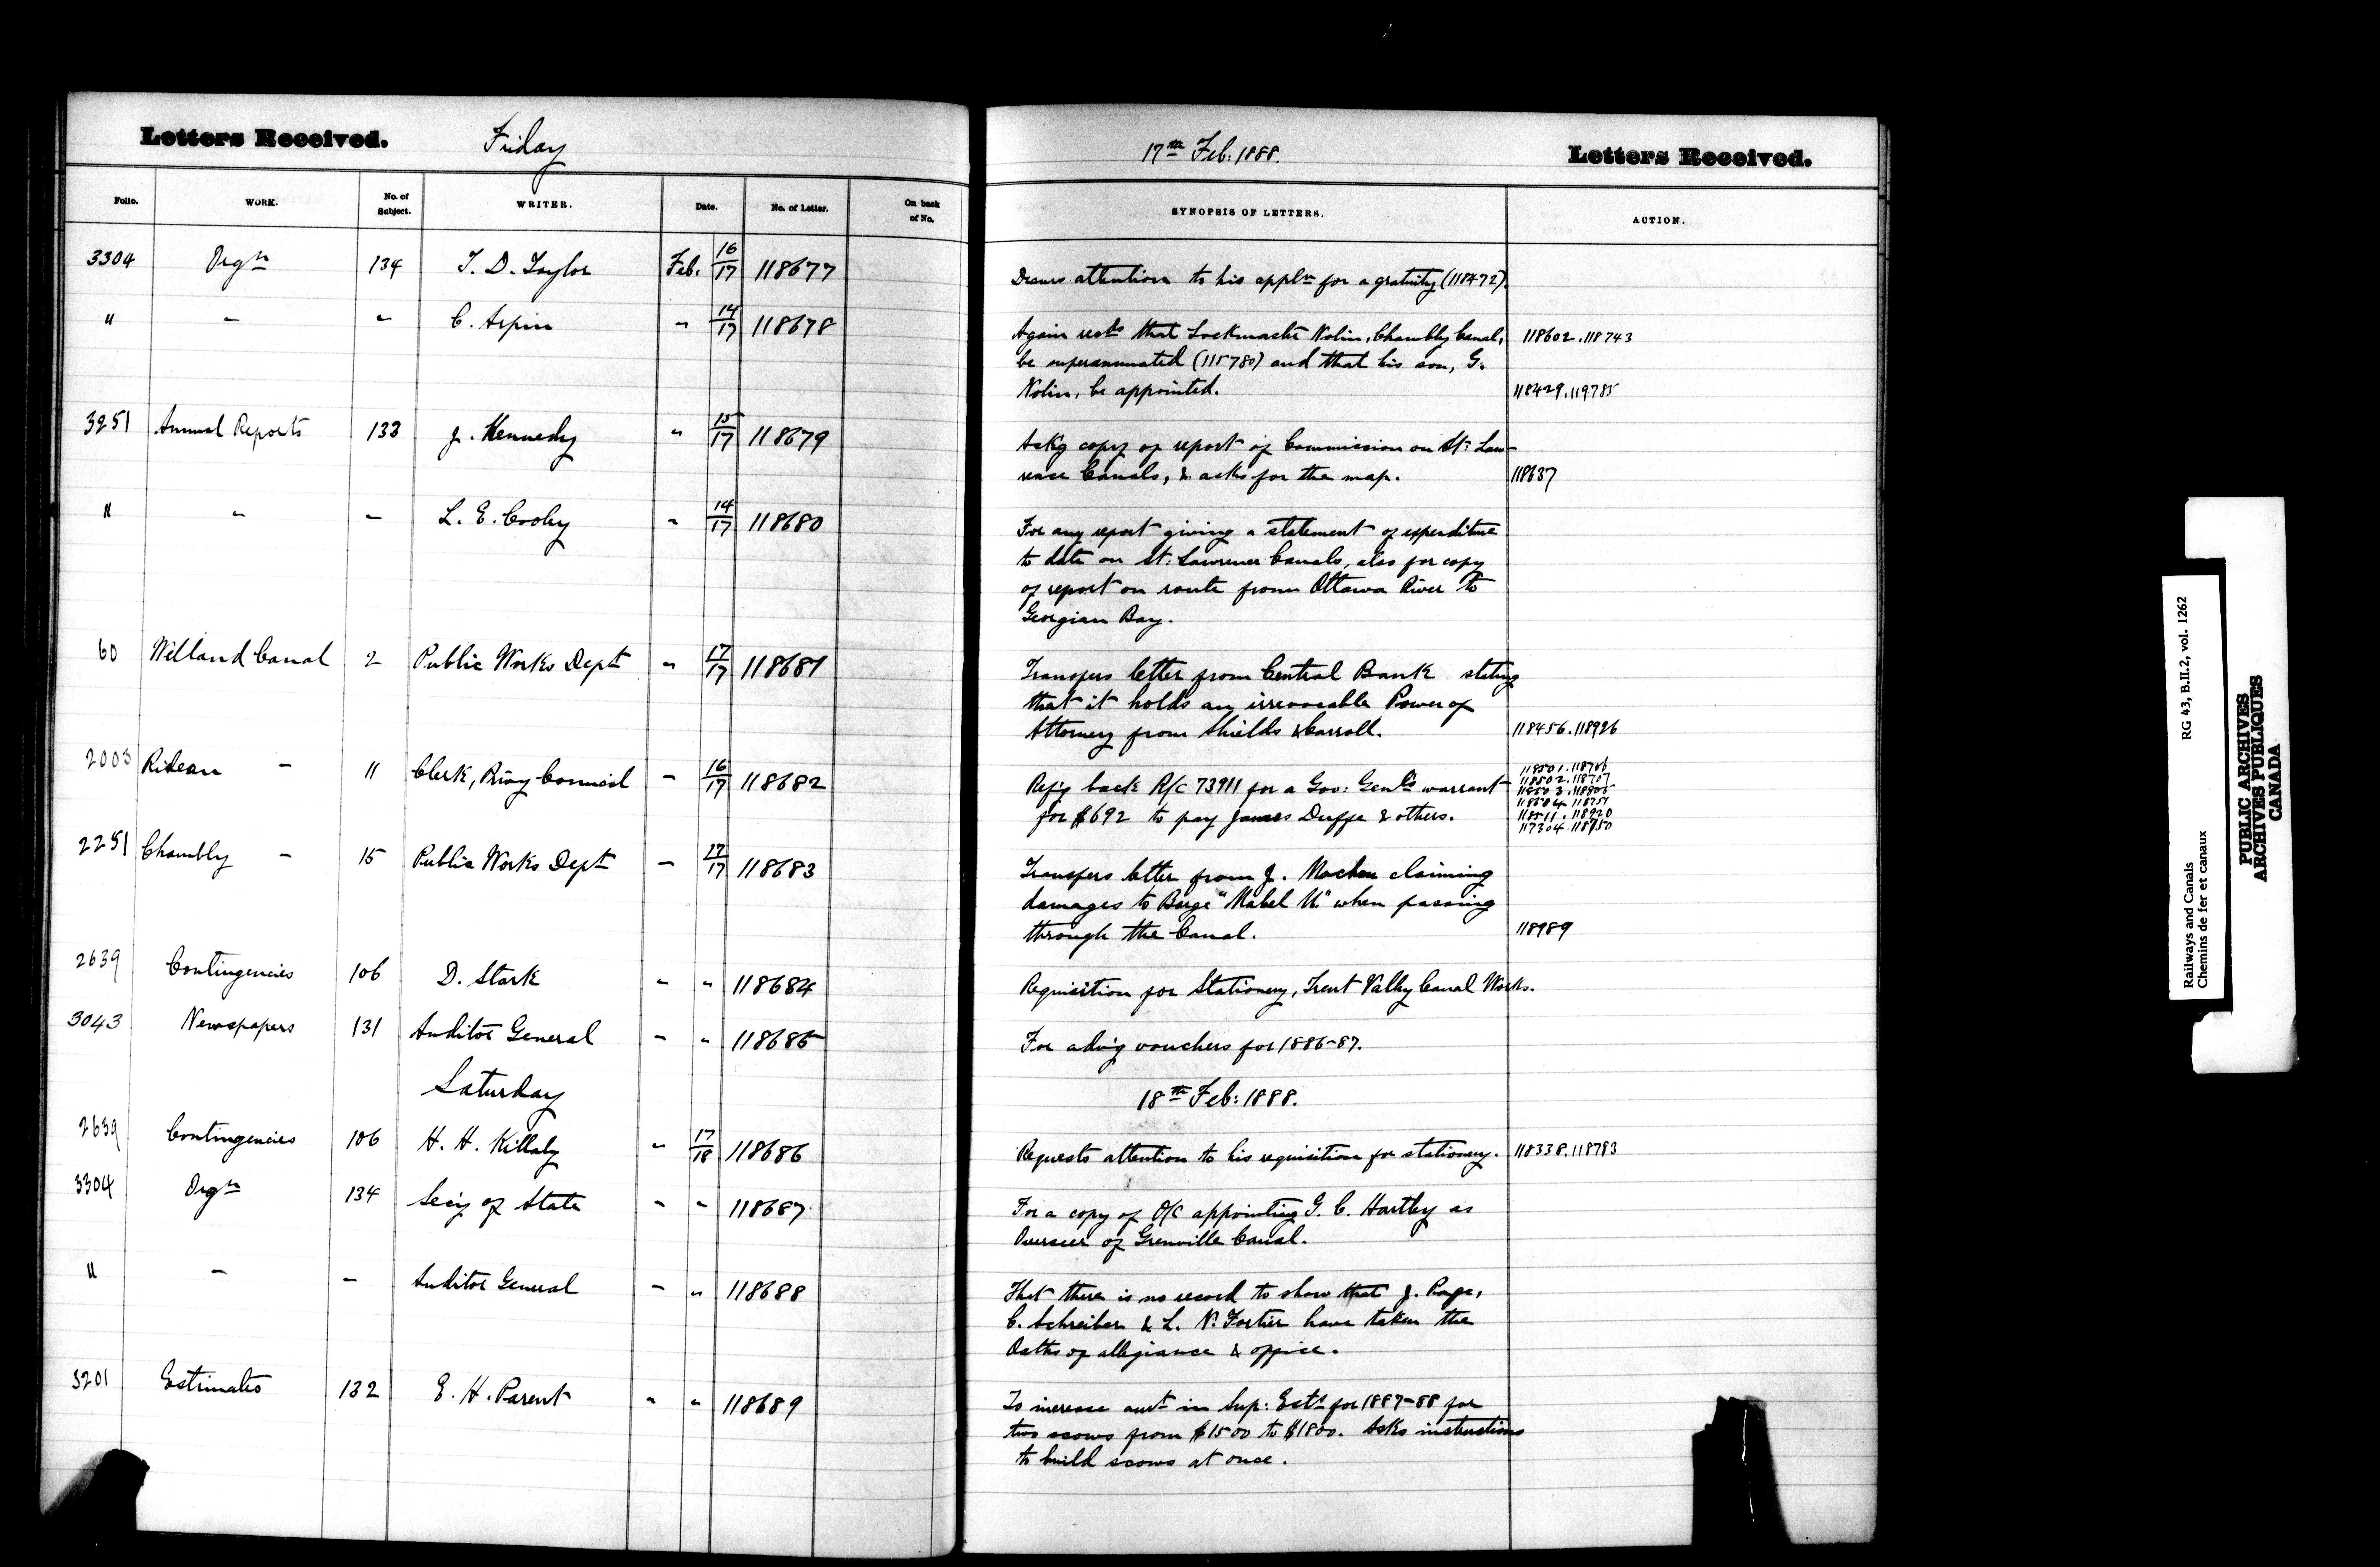 Letters Received. Friday
Folio. WORK. No. of Subject. WRITER. Date. No. of Letter. On back of No.
3304 Orgn 134 T. D. Taylor Feb. 16/17 118677
" " " C. Arpin " 14/17 118678
3251 Annual Reports 133 J. Kennedy " 15/17 118679
" " " L. E. Cooley " 14/17 118680
60 Welland Canal 2 Public Works Dept " 17/17 118681
2003 Rideau " 11 Clerk, Privy Council " 16/17 118682
2251 Chambly " 15 Public Works Dept " 17/17 118683
2639 Contingencies 106 D. Stark " " 118684
3043 Newspapers 131 Auditor General " " 118685
Saturday
2639 Contingencies 106 H. H. Killaly " 17/18 118686
3304 Orgn 134 Secy of State " " 118687
" " " Auditor General " " 118688
3201 Estimates 132 E. H. Parent " " 118689
17th Feb: 1888. Letters Received.
SYNOPSIS OF LETTERS. ACTION.
Draws attention to his appln for a gratuity (118472).
Again recds that Lockmaster Nolin, Chambly Canal, 118602.118743
be superannuated (115780) and that his son, G.
Nolin, be appointed. 118429.119785
Ackg copy of report of Commission on St. Law-
rence Canals, & asks for the map. 118637
For any report giving a statement of expenditure
to date on St. Lawrence Canals, also for copy
of report on route from Ottawa River to
Georgian Bay.
Transfers letter from Central Bank stating
that it holds an irrevocable Power of
Attorney from Shields & Carroll. 118456.118926
118502.118707
Refg back R/C 73911 for a Gov: Genl's warrant
for $692 to pay James Duffe & others.
118511.118920
Transfers letter from J. claiming
damages to Barge "Mabel " when passing
through the Canal. 118989
Requisition for Stationery, Trent Valley Canal Works.
For advg vouchers for 1886-87.
18th Feb: 1888.
Requests attention to his requisition for stationery. 118338.118783
For a copy of O/C appointing G. C. Hartley as
Overseer of Grenville Canal.
That there is no record to show that J. Page,
C. Schreiber & L. N. Fortier have taken the
Oaths of allegiance & office.
To increase amt in Sup: Ests for 1887-88 for
two scows from $1500 to $1800. Asks instructions
to build scows at once.
Railways and Canals RG 43, B.II.2, vol. 1262
Chemins de fer et canaux
PUBLIC ARCHIVES
ARCHIVES PUBLIQUES
CANADA